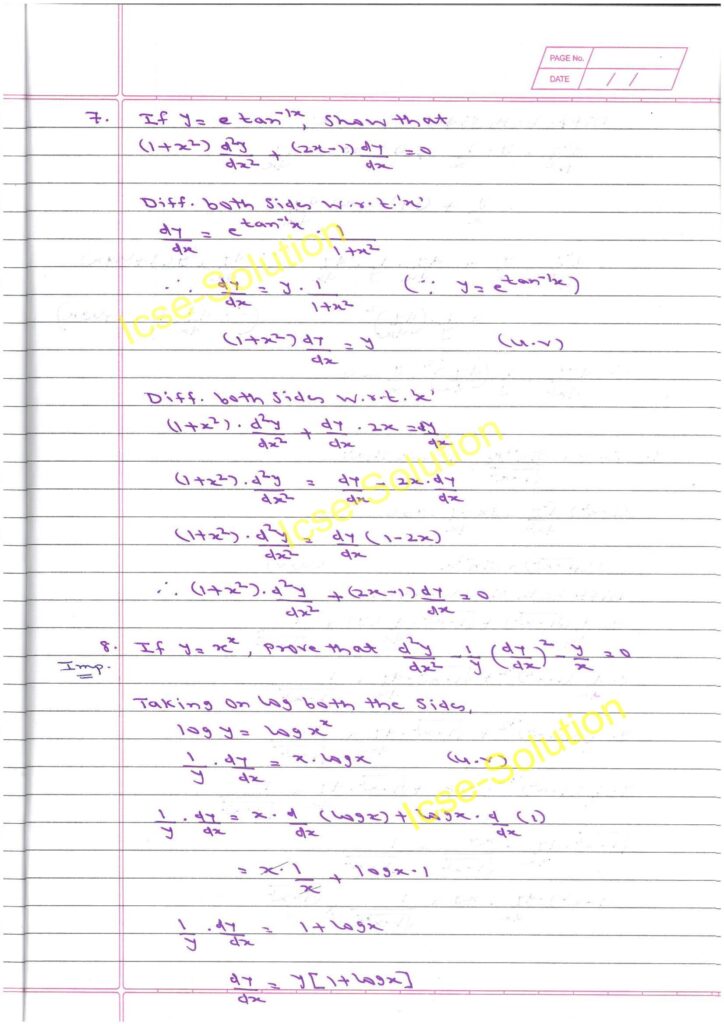 PAGE No.
DATE / /
7. If y = e tan⁻¹x, show that
(1+x²) d²y/dx² + (2x-1) dy/dx = 0
Diff. both sides w.r.t. 'x'
dy/dx = e^tan⁻¹x · 1/1+x²
∴ dy/dx = y · 1/1+x² (∵ y = e^tan⁻¹x)
(1+x²) dy/dx = y (u.v)
Diff. both sides w.r.t. 'x'
(1+x²) · d²y/dx² + dy/dx · 2x = dy/dx
(1+x²) · d²y/dx² = dy/dx - 2x · dy/dx
(1+x²) · d²y/dx² = dy/dx (1-2x)
∴ (1+x²) · d²y/dx² + (2x-1) dy/dx = 0
8. If y = xˣ, prove that d²y/dx² - 1/y (dy/dx)² - y/x = 0
Imp.
Taking on log both the sides,
log y = log xˣ
1/y · dy/dx = x · log x (u.v)
1/y · dy/dx = x · d/dx (log x) + log x · d/dx (1)
= x · 1/x + log x · 1
1/y · dy/dx = 1 + log x
dy/dx = y [1 + log x]
Icse-Solution
Icse-Solution
Icse-Solution